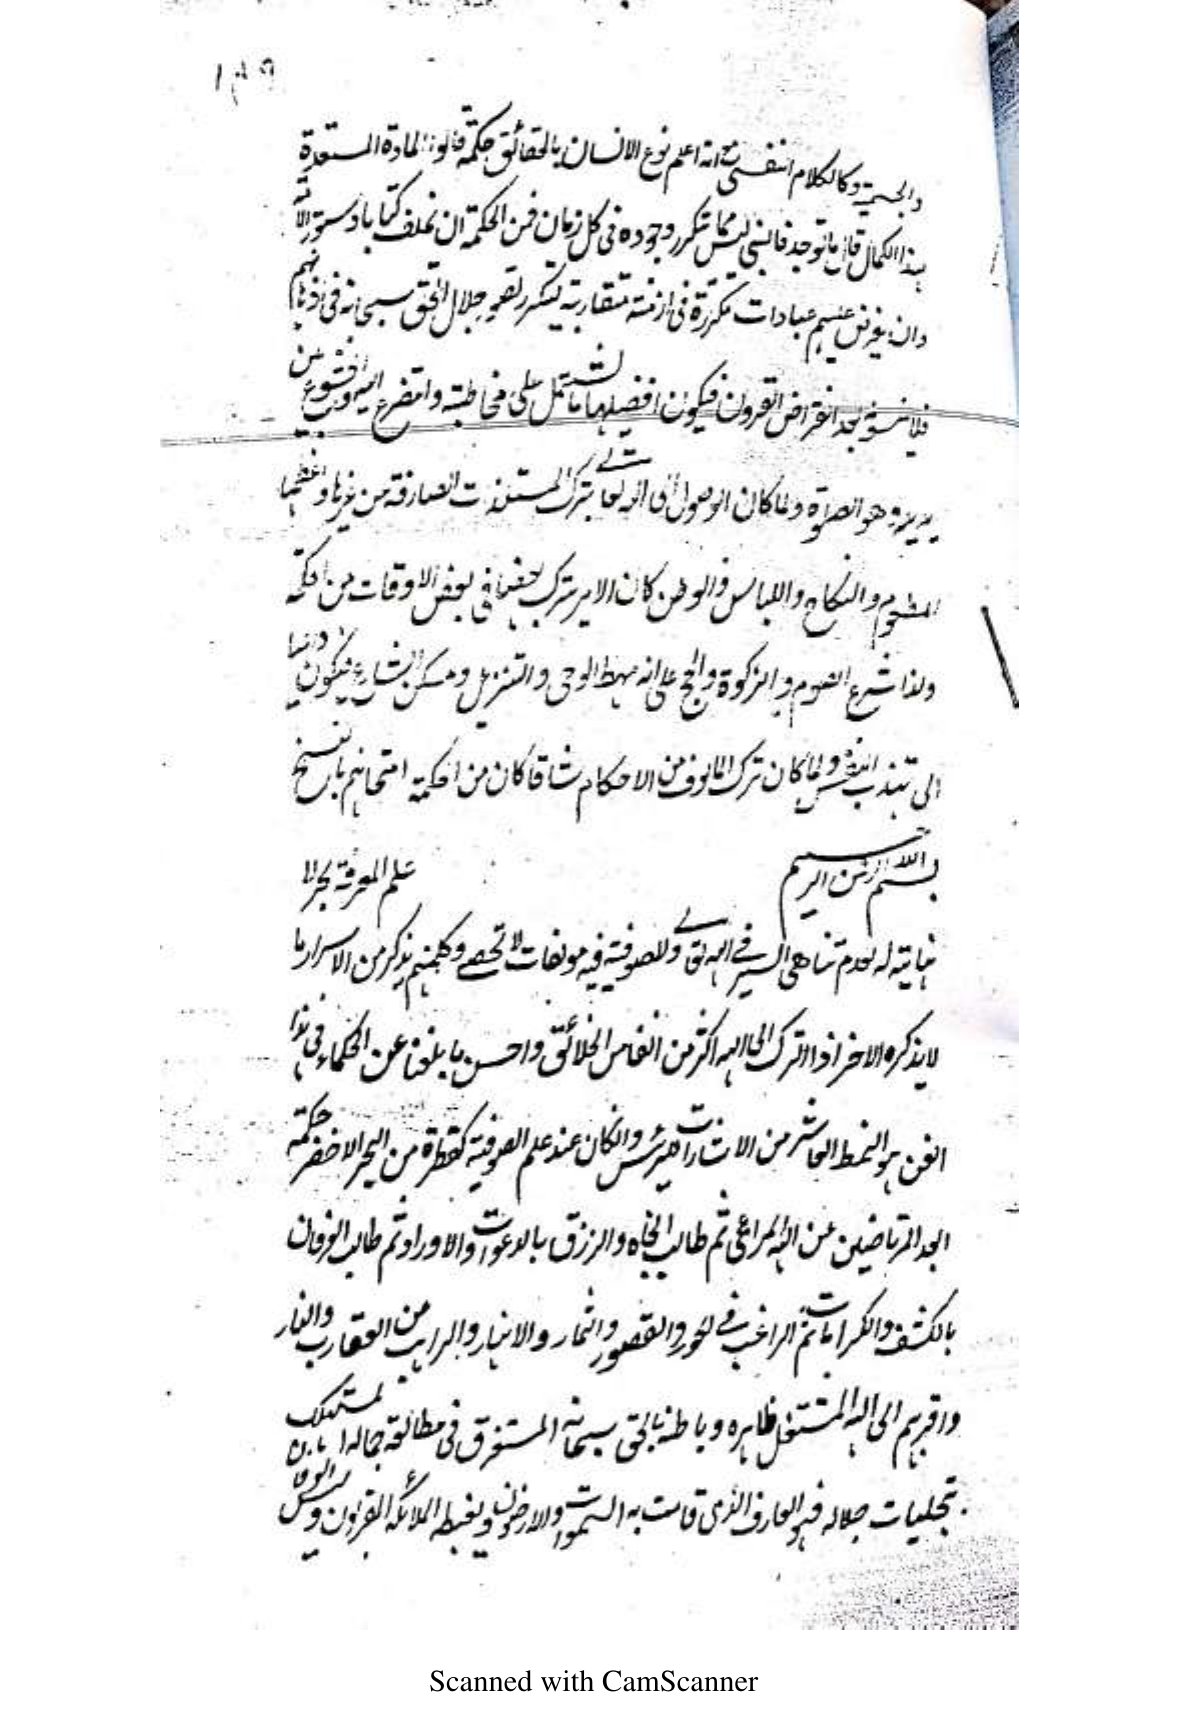 ١٨٩
والجسمية وكالكلام النفسى مع انه اعلم نوع الانسان بالحقائق حكمة قالوا المادة المستعدة
بهذا الكمال قل ما توجد فالنبى ليس مما يتكرر وجوده فى كل زمان فمن الحكمة ان يخلف كتابا دستور الامته
وان يفرض عليهم عبادات مكررة فى ازمنة متقاربة ليتكرر تصور جلال الحق سبحانه فى اذهانهم
فلا ينسونه بعد انقراض القرون فيكون افضلها ما تشتمل على مخاطبته والتضرع اليه والخشوع بين
يديه وهو الصلوة ولما كان الوصول الى الله تعالى بترك المستلذات الصارفة من غيرها واعظمها
المطعوم والنكاح واللباس والوطن كان الامر بترك بعضها فى بعض الاوقات من الحكمة
ولذا شرع الصوم والزكوة والحج على انه مهبط الوحى والتنزيل ومسكن الشارع فيكون داعيا
الى تهذيب النفس ولما كان ترك المالوف من الاحكام شاقا كان من الحكمة امتحانهم بالنسخ
بسم الله الرحمن الرحيم علم المعرفة بحر لا
نهاية له لعدم تناهى السير فى الله تعالى وللصوفية فيه مولفات لا تحصى وكلهم يذكر من الاسرار ما
لا يذكره الاخر اذ الترك الى الله اكثر من انفاس الخلائق واحسن ما بلغنا عن الحكماء فى هذا
الفن هو النمط العاشر من الاشارات وان كان عند علم الصوفية كقطرة من البحر الاخضر حكمة
ابعد المرتاضين عن الله المرائى ثم طالب الجاه والرزق بالدعوات والاوراد ثم طالب العرفان
بالكشف والكرامات ثم الراغب فى الحور والقصور والثمار والانهار والراهب من العقارب والنار
واقربهم الى الله المشتغل ظاهره وباطنه بالحق سبحانه المستغرق فى مطالعة جماله المستهلك
تجليات جلاله فهو العارف الذى قامت به السموات والارضون ويغبطه الملائكة المقربون وليس